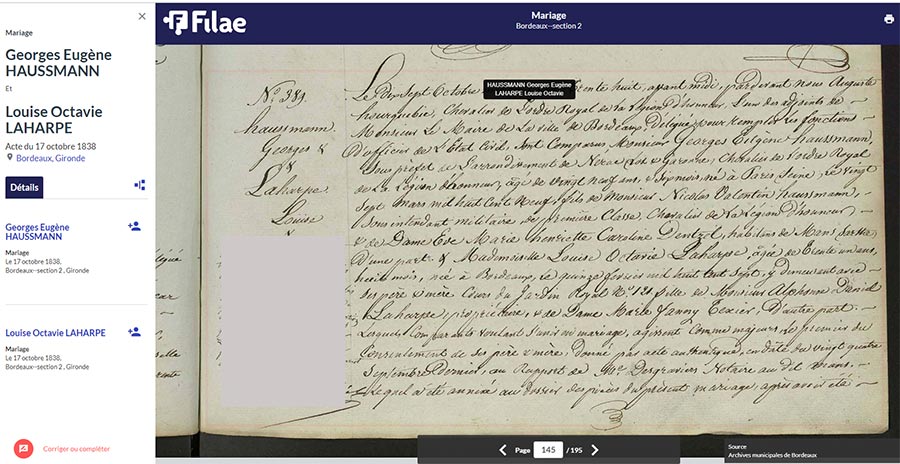 Mariage
Georges Eugène
HAUSSMANN
Et
Louise Octavie
LAHARPE
Acte du 17 octobre 1838
Bordeaux, Gironde
Détails
Georges Eugène
HAUSSMANN
Mariage
Le 17 octobre 1838,
Bordeaux--section 2 , Gironde
Louise Octavie LAHARPE
Mariage
Le 17 octobre 1838,
Bordeaux--section 2 , Gironde
Corriger ou compléter
Filae
Mariage
Bordeaux--section 2
HAUSSMANN Georges Eugène
LAHARPE Louise Octavie
N.° 389.
haussmann
Georges &
&
Laharpe
Louise
Le Dix Sept Octobre trente huit, apant midi, pardevant nous Auguste
Chevalier de l'ordre Royal de la légion d'honneur, L'un des adjoints de
Monsieur Le Maire de La ville de Bordeaux, Délégué pour remplir les fonctions
D'officier de L'Etat Civil. Sont Comparus Monsieur Georges Eugene haussmann,
Sous préfet de L'arrondissement de Nérac Lot & Garonne, Chevalier de l'ordre Royal
de La Légion d'honneur, âgé de vingt neuf ans, & Sept mois, né à Paris, Seine, le vingt
Sept Mars mil huit Cent Neuf, fils de Monsieur Nicolas Valentin haussmann,
Sous intendant militaire de première Classe, Chevalier de la Légion d'honneur
& de Dame Eve Marie henriette Caroline Dentzel, habitans de Mans,
D'une part. & Mademoiselle Louise Octavie Laharpe, âgée de trente un ans,
huit mois, née à Bordeaux, le quinze février mil huit Cent Sept, y demeurant avec
Ses père & mère Cours du Jardin Royal N.° 121. fille de Monsieur Alphonse Daniel
Laharpe, propriétaire, & de Dame Marie fanny Texier, D'autre part.
Lesquels Comparants voulant S'unir en mariage, agissent Comme majeurs, Le premier du
Consentement de Ses père & mère, donné par acte authentique, en date du vingt quatre
Septembre Dernier, au Rapport de M.e Desgraviers Notaire au dit Mans.
Lequel a été annexé au dossier des pièces du présent mariage, après avoir été
Page 145 / 195
Source
Archives municipales de Bordeaux